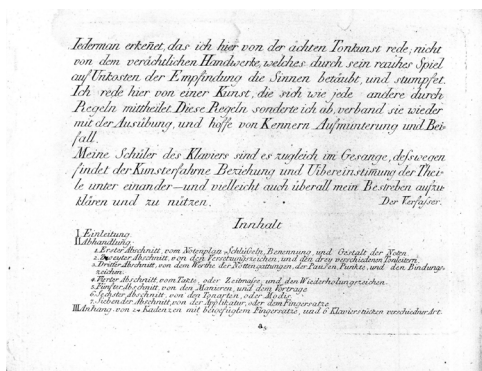 Jederman erkeñet, das ich hier von der ächten Tonkunst rede, nicht
von dem verächtlichen Handwerke, welches durch sein rauhes Spiel
auf Unkosten der Empfindung die Sinnen betäubt, und stumpfet.
Ich rede hier von einer Kunst, die sich wie jede andere durch
Regeln mittheilet. Diese Regeln sonderte ich ab, verband sie wieder
mit der Ausübung, und hoffe von Kennern Aufmunterung und Bei-
fall.
Meine Schüler des Klaviers sind es zugleich im Gesange, desswegen
findet der Kunsterfahrne Beziehung und Uibereinstim̃ung der Thei-
le unter einander — und vielleicht auch überall mein Bestreben aufzu-
klären und zu nützen. Der Verfasser.
Innhalt
I. Einleitung.
II. Abhandlung.
1. Erster Abschnitt, vom Notenplan, Schlüsseln, Benennung, und Gestalt der Noten
2. Zweyter Abschnitt, von den Versetzungszeichen, und den drey verschiedenen Tonleitern.
3. Dritter Abschnitt, von dem Werthe der Nottengattungen, der Pausen, Punkte, und den Bindungs-
zeichen.
4. Vierter Abschnitt, vom Takte, oder Zeitmasse, und den Wiederholungszeichen.
5. Fünfter Abschnitt, von den Manieren, und dem Vortrage
6. Sechster Abschnitt, von den Tonarten, oder Modis.
7. Siebender Abschnitt, von der Applikatur, oder dem Fingersatze.
III. Anhang von 24 Kadenzen mit beigefügtem Fingersatze, und 6 Klavierstücken verschiedner Art.